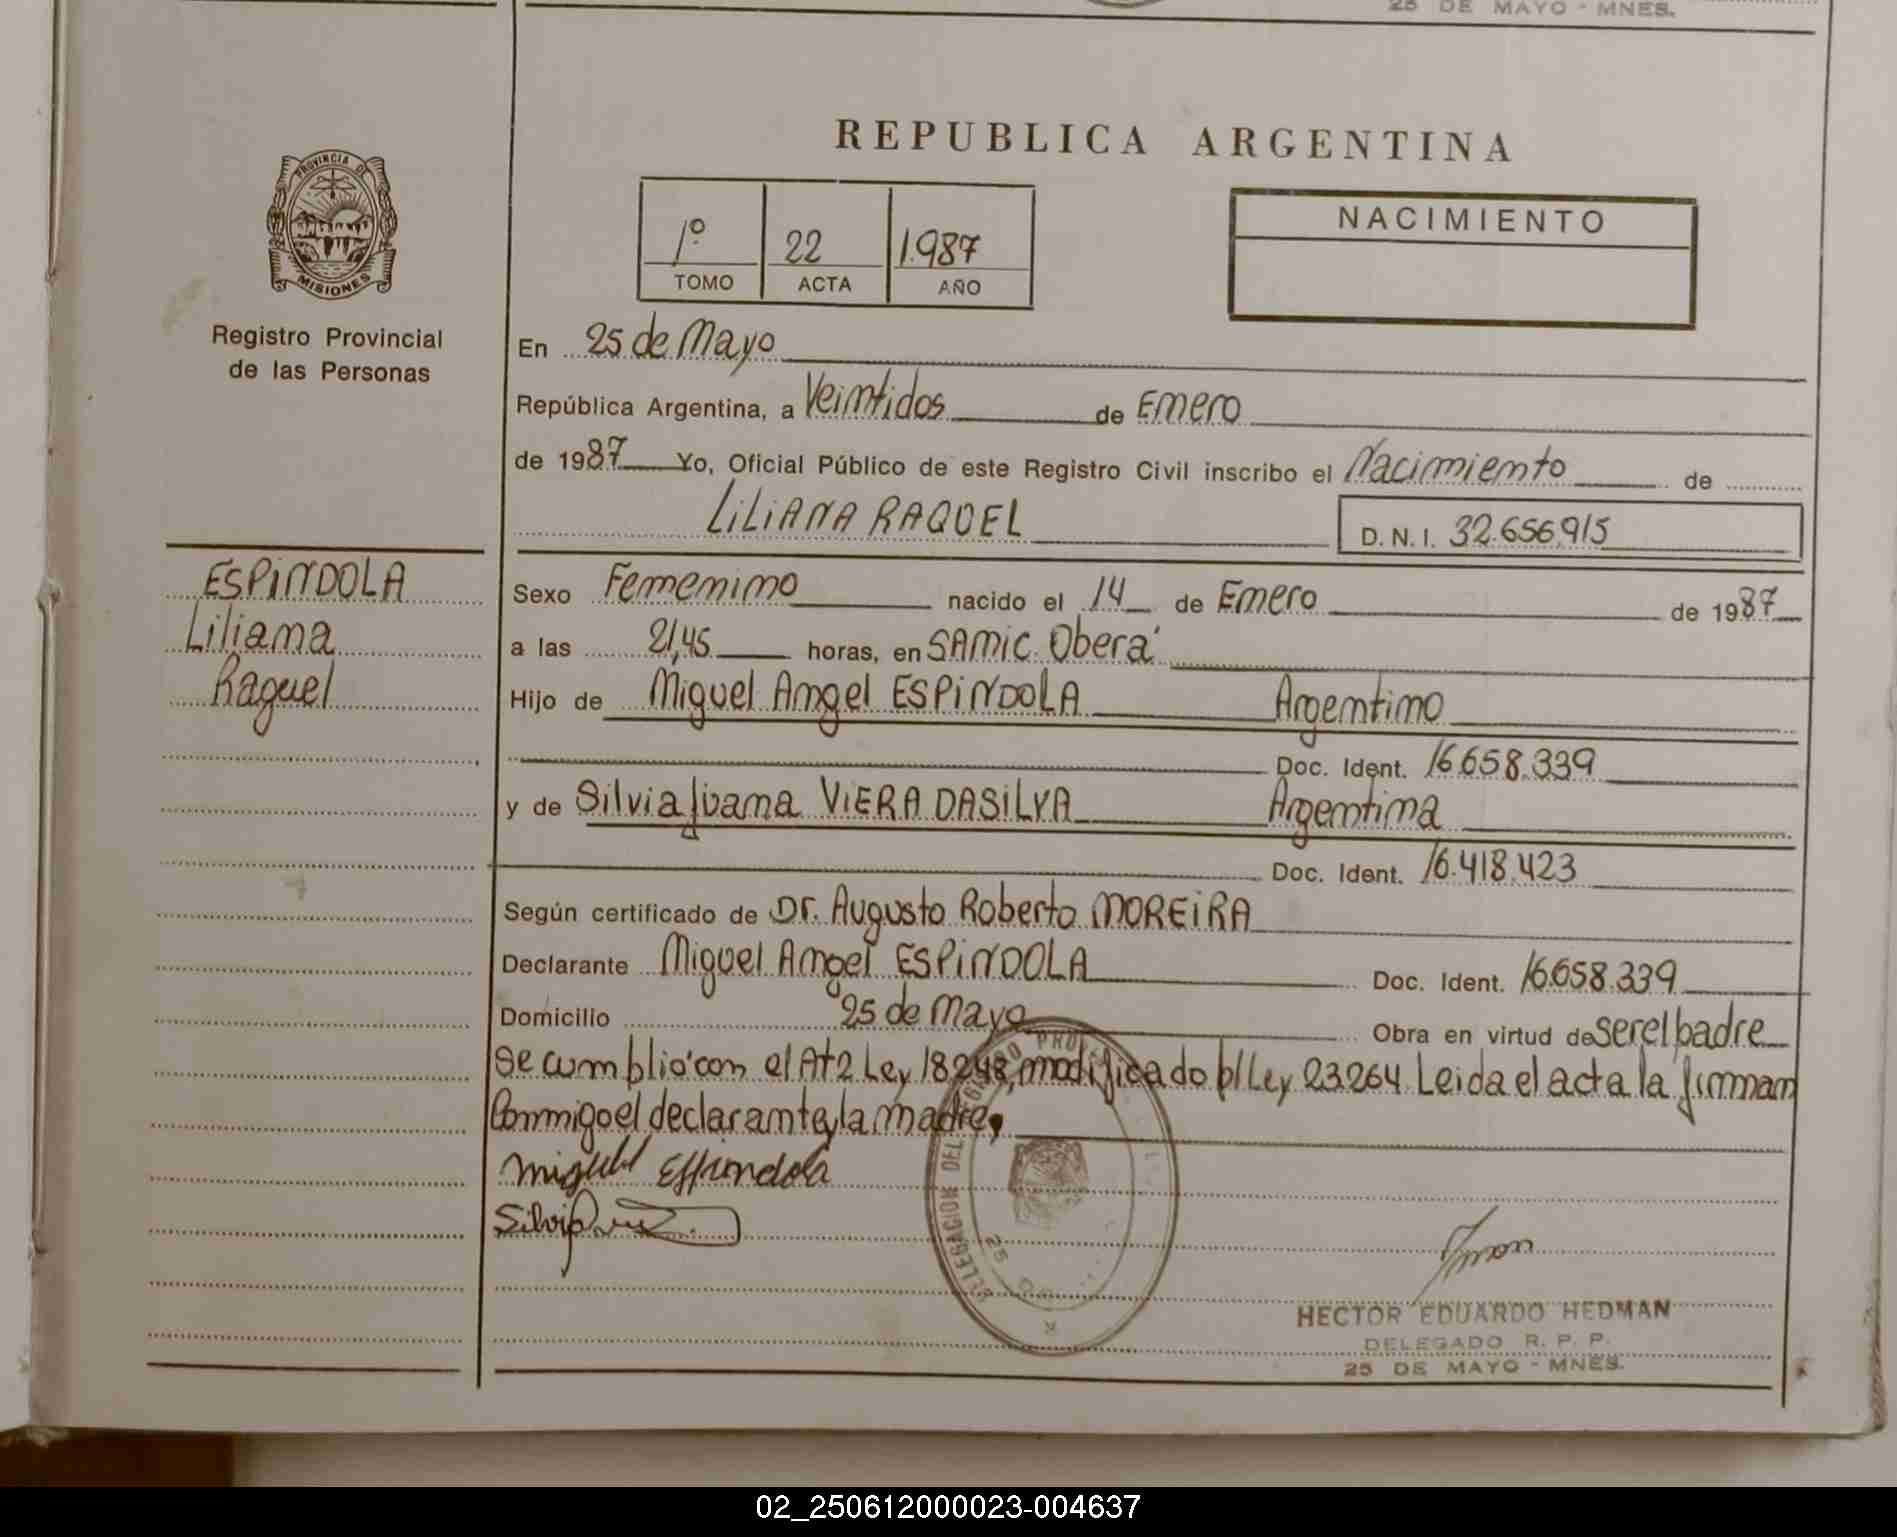 25 DE MAYO - MNES.
REPUBLICA ARGENTINA
PROVINCIA DE
MISIONES
Registro Provincial
de las Personas
1º 22 1.987
TOMO ACTA AÑO
NACIMIENTO
En 25 de Mayo
República Argentina, a Veintidos de Enero
de 1987 Yo, Oficial Público de este Registro Civil inscribo el Nacimiento de
LILIANA RAQUEL D.N.I. 32.656.915
ESPINDOLA
Liliana
Raquel
Sexo Femenino nacido el 14 de Enero de 1987
a las 21,45 horas, en SAMIC. Oberá
Hijo de Miguel Angel ESPINDOLA Argentino
Doc. Ident. 16.658.339
y de Silvia Juana VIERA DASILVA Argentina
Doc. Ident. 16.418.423
Según certificado de Dr. Augusto Roberto MOREIRA
Declarante Miguel Angel ESPINDOLA Doc. Ident. 16.658.339
Domicilio 25 de Mayo Obra en virtud de ser el padre
Se cumplió con el At 2 Ley 18248, modificado p/ Ley 23.264. Leida el acta la firman
Conmigo el declarante y la madre,
Miguel Espindola
Silvia
DELEGACION DEL
25
HECTOR EDUARDO HEDMAN
DELEGADO R. P. P.
25 DE MAYO - MNES.
02_250612000023-004637